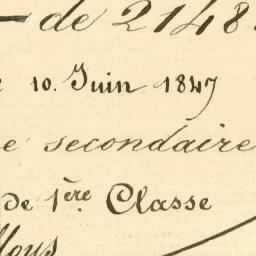 de 2148
10. Juin 1847
e secondaire
de 1ère Classe